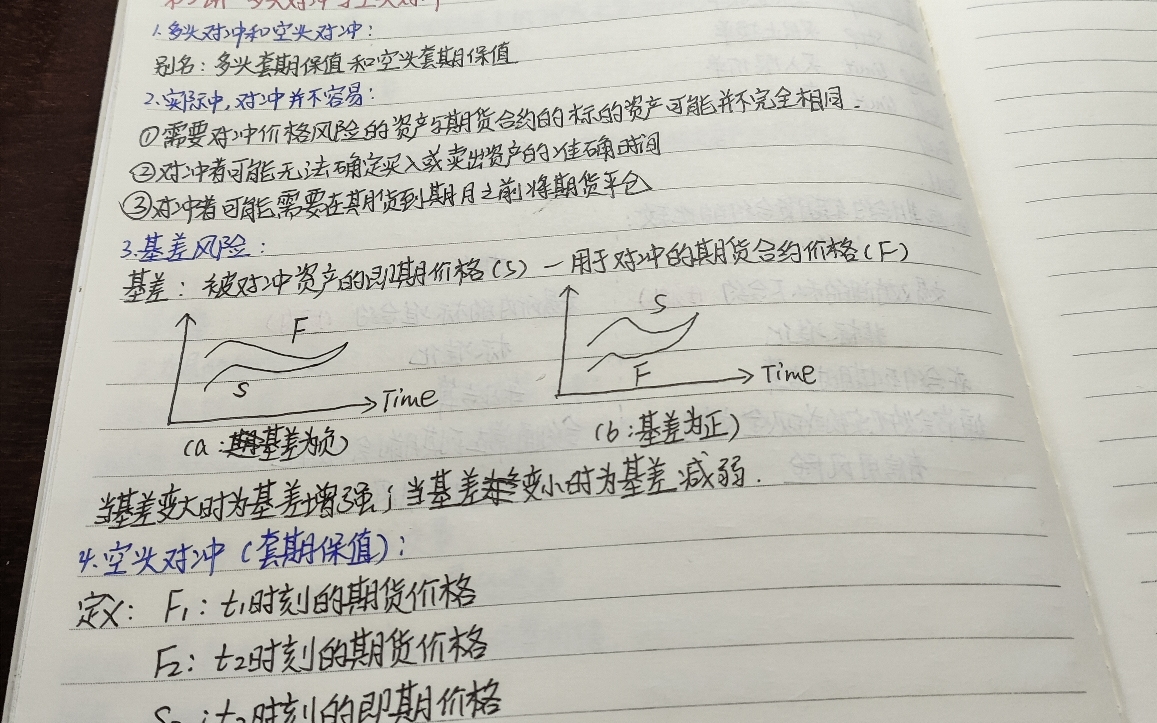 多头对冲与空头对冲
1.多头对冲和空头对冲:
别名:多头套期保值和空头套期保值
2.实际中,对冲并不容易:
①需要对冲价格风险的资产与期货合约的标的资产可能并不完全相同.
②对冲者可能无法确定买入或卖出资产的准确时间
③对冲者可能需要在期货到期月之前将期货平仓
3.基差风险:
基差:被对冲资产的即期价格(S)－用于对冲的期货合约价格(F)
F
S
Time
(a:基差为负)
S
F
Time
(b:基差为正)
当基差变大时为基差增强;当基差变小时为基差减弱.
4.空头对冲(套期保值):
定义: F₁: t₁时刻的期货价格
F₂: t₂时刻的期货价格
S₂: t₂时刻的即期价格